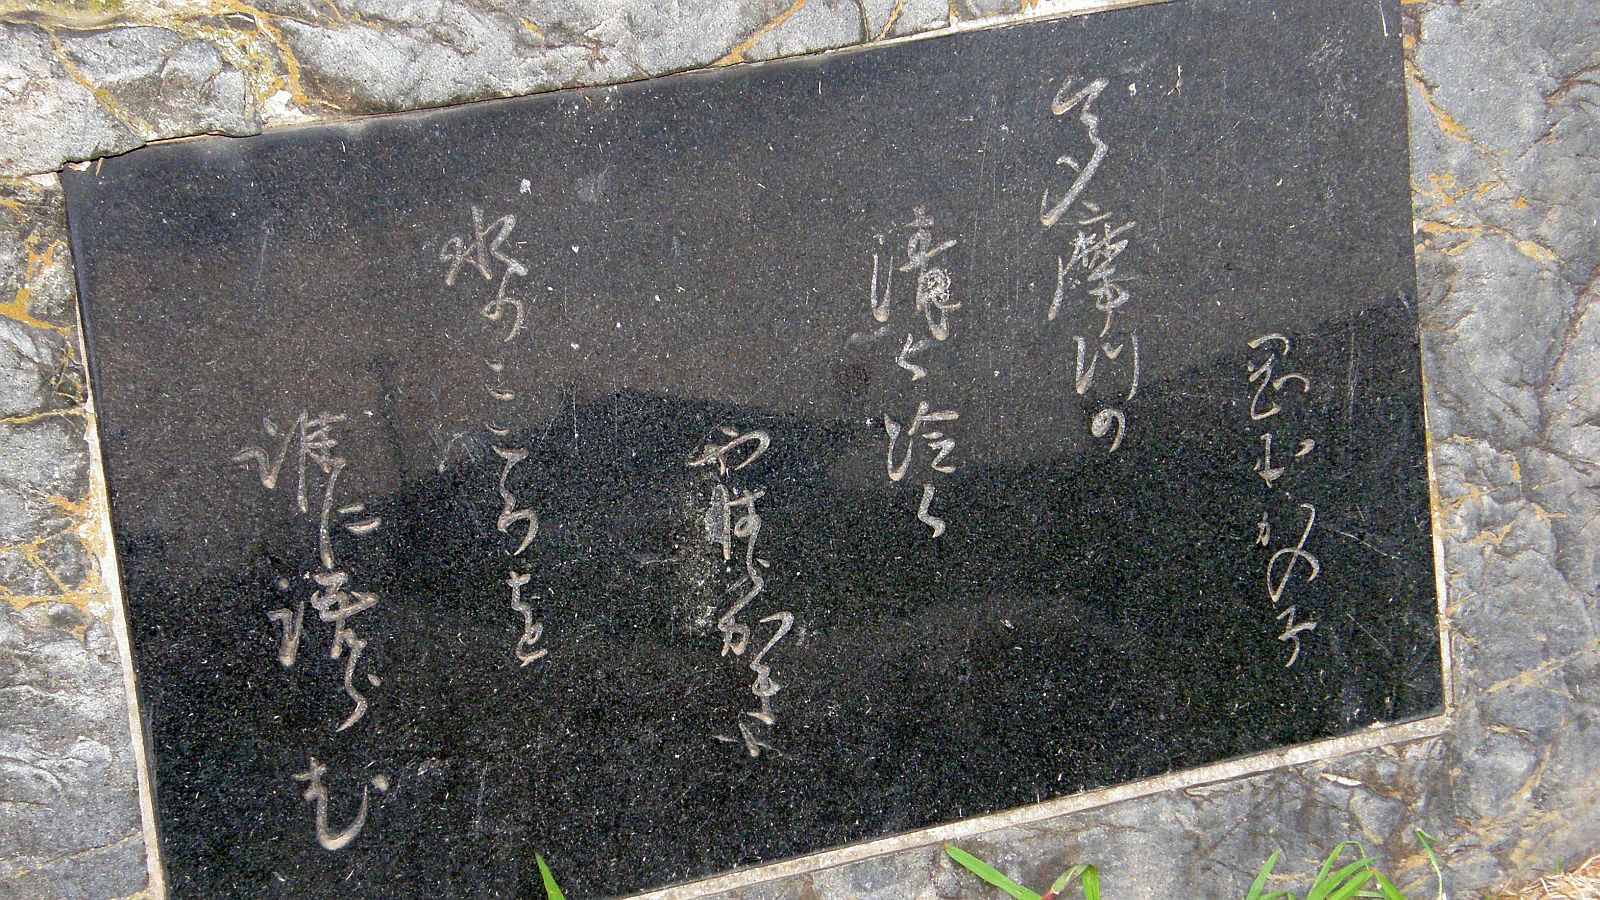 岡本かの子
多摩川の
清く冷く
やはらかき
水のこころを
誰に語らむ